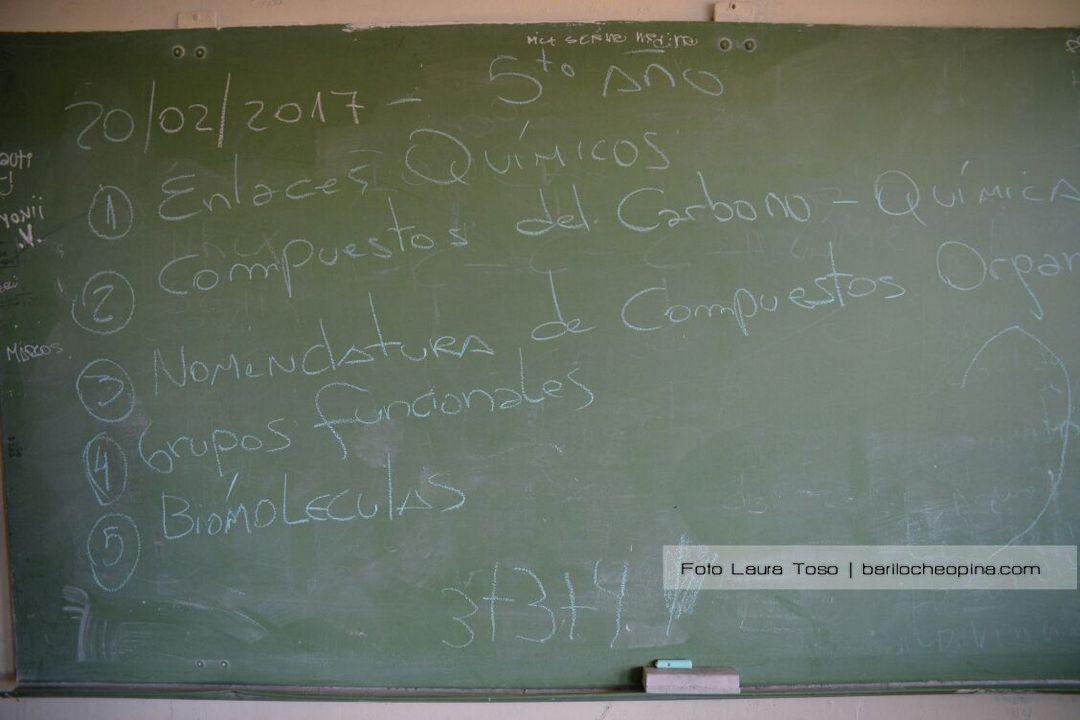 20/02/2017 - 5to Año
① Enlaces Químicos
② Compuestos del Carbono - Química
③ Nomenclatura de Compuestos Organ
④ Grupos funcionales
⑤ Biomóleculas
3+3+4
Foto Laura Toso | barilocheopina.com